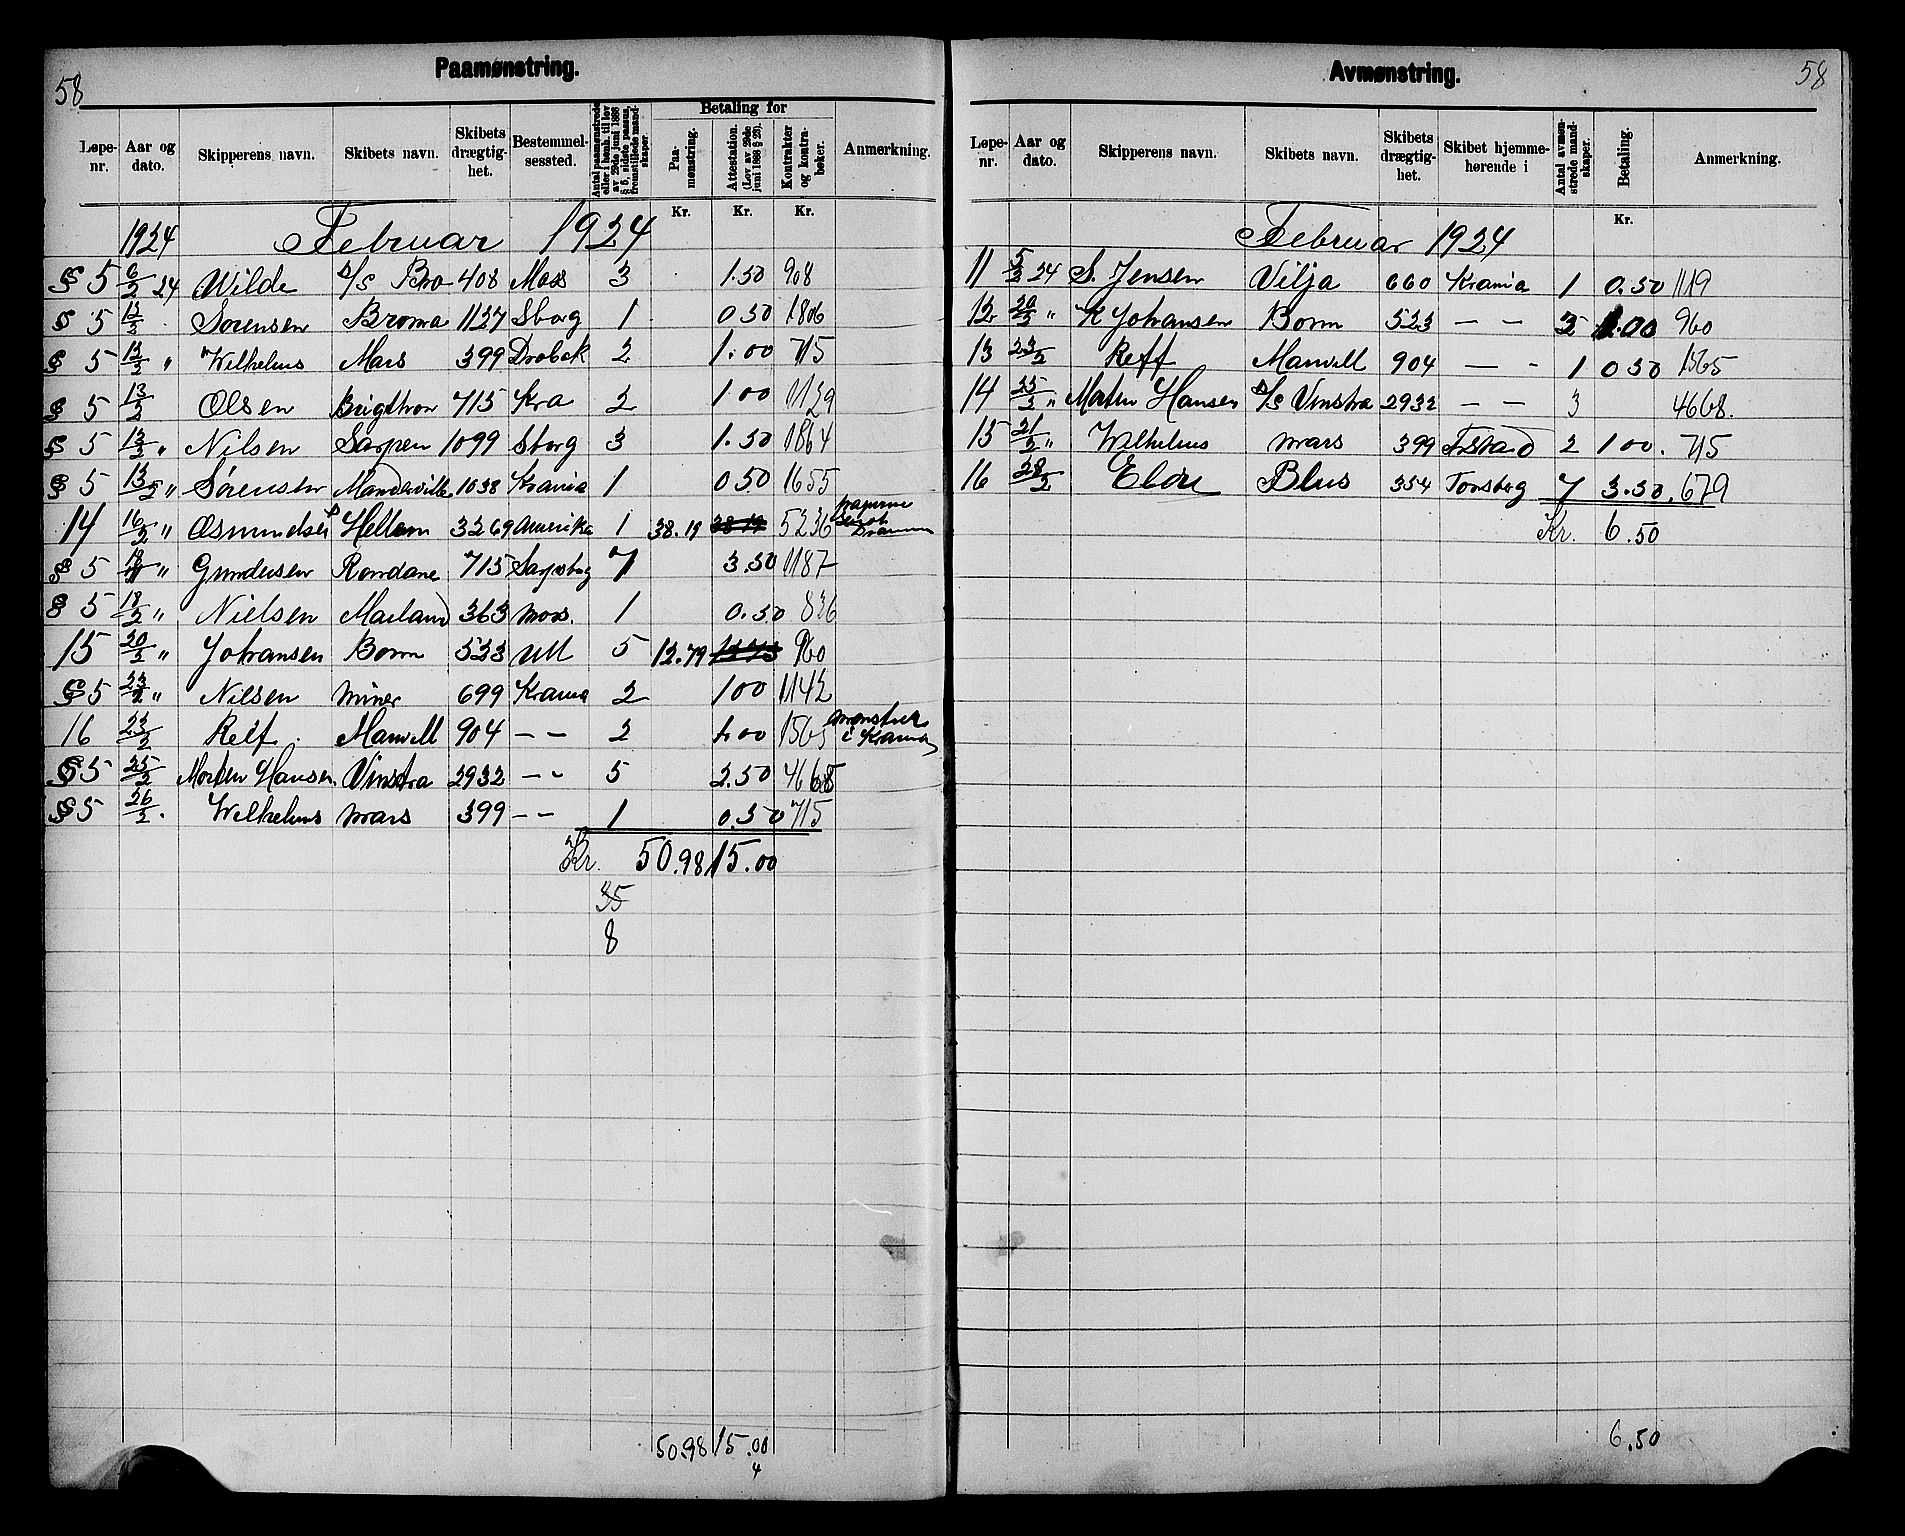 58
Paamønstring.
Løpe-nr. Aar og dato. Skipperens navn. Skibets navn. Skibets drægtig-het. Bestemmel-sessted. Antal paamønstrede eller i henh. til lov av 29de juni 1888 § 5, sidste passus, fremstillede mand-skaper Betaling for Paa-mønstring. Attestation. (Lov av 29de juni 1888 § 25). Kontrakter og kontra-bøker. Anmerkning.
Kr. Kr. Kr.
1924 Februar 1924
§ 5 6/2 24 Wilde s/s Bro 408 Moss 3 1.50 908
§ 5 12/2 Sørensen Broma 1127 Sborg 1 0 50 1806
§ 5 12/2 " Wilhelms Mars 399 Drøbak 2 1.00 715
§ 5 13/2 Olsen 715 Kra 2 1 00 1129
§ 5 13/2 " Nilsen Sarpen 1099 Sborg 3 1.50 1864
§ 5 13/2 " Sørensen Manderville 1038 Krania 1 0 50 1655
14 16/2 " Osmundsen Hellem 3269 Amerika 1 38.19 5236
§ 5 18/2 " Gundersen Rondane 715 Sarpsborg 7 3.50 1187
§ 5 18/2 " Nielsen Marland 363 Moss. 1 0.50 836
15 20/2 " Johansen Borm 523 Ull 5 12.79 960
§ 5 23/2 " Nilsen Miner 699 Krania 2 1 00 1142
16 23/2 Relf. Manvill 904 – – 2 1.00 1565 mønstret i Krania
§ 5 25/2 Morten Hansen. Vinstra 2932 – – 5 2.50 4668
§ 5 26/2 . Wilhelms Mars 399 – – 1 0.50 715
Kr. 50.98 15.00
35
8
50.98 15.00
4
58
Avmønstring.
Løpe-nr. Aar og dato. Skipperens navn. Skibets navn. Skibets drægtig-het. Skibet hjemme-hørende i Antal avmøn-strede mand-skaper. Betaling. Anmerkning.
Kr.
Februar 1924
11 5/2 24 S. Jensen Vilja 660 Krania 1 0.50 1119
12 20/2 " K Johansen Borm 523 – – 1.00 960
13 23/2 Reff Manvill 904 – - 1 0 50 1565
14 25/2 " Morten Hansen s/s Vinstra 2932 – – 3 4668.
15 21/2 " Wilhelms Mars 399 Fstad 2 1 00. 715
16 28/2 Blus 354 Tonsberg 7 3.50. 679
Kr. 6.50
6.50